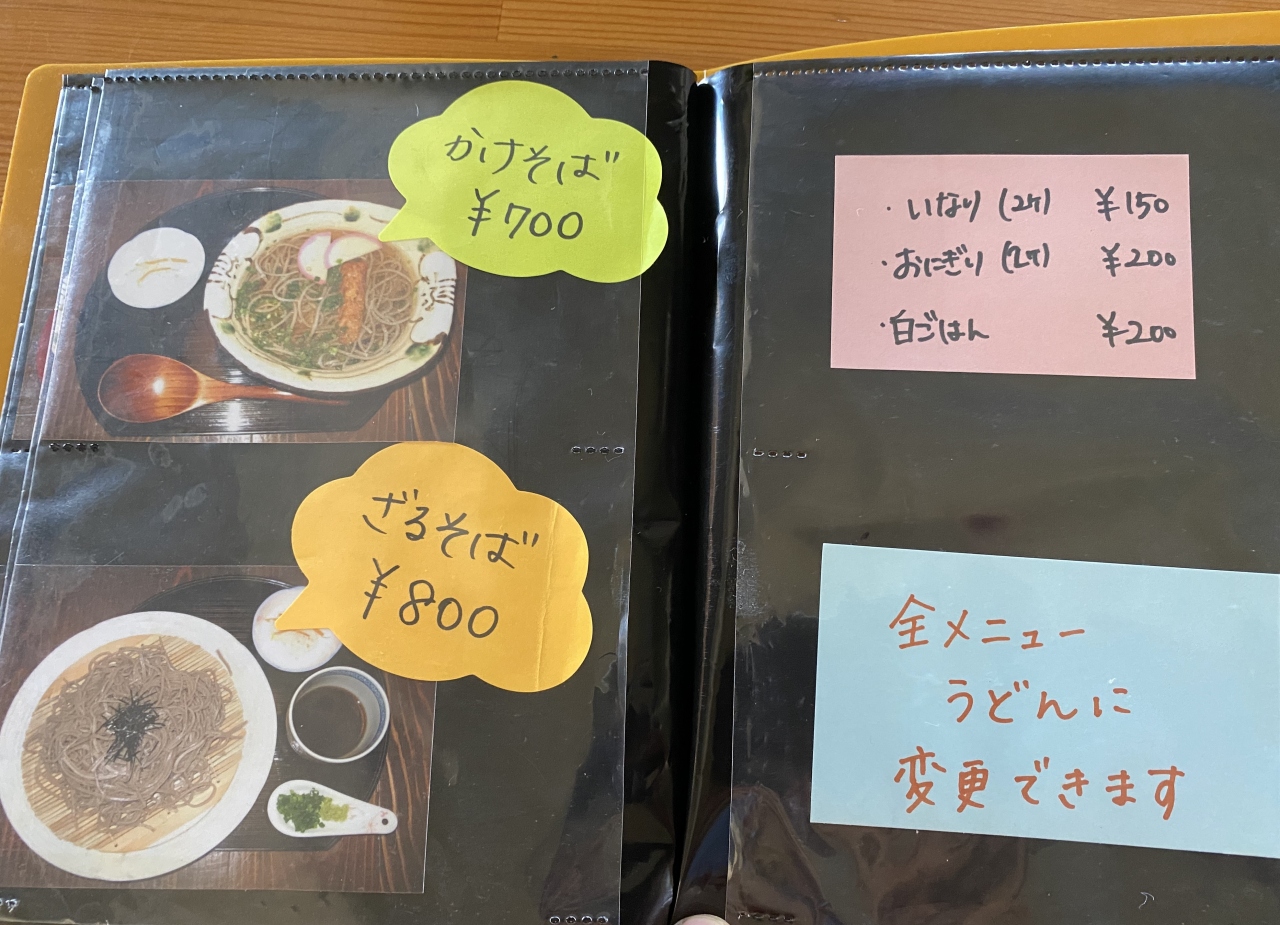 かけそば
¥700
ざるそば
¥800
・いなり(2ケ) ¥150
・おにぎり(2ケ) ¥200
・白ごはん ¥200
全メニュー
うどんに
変更できます